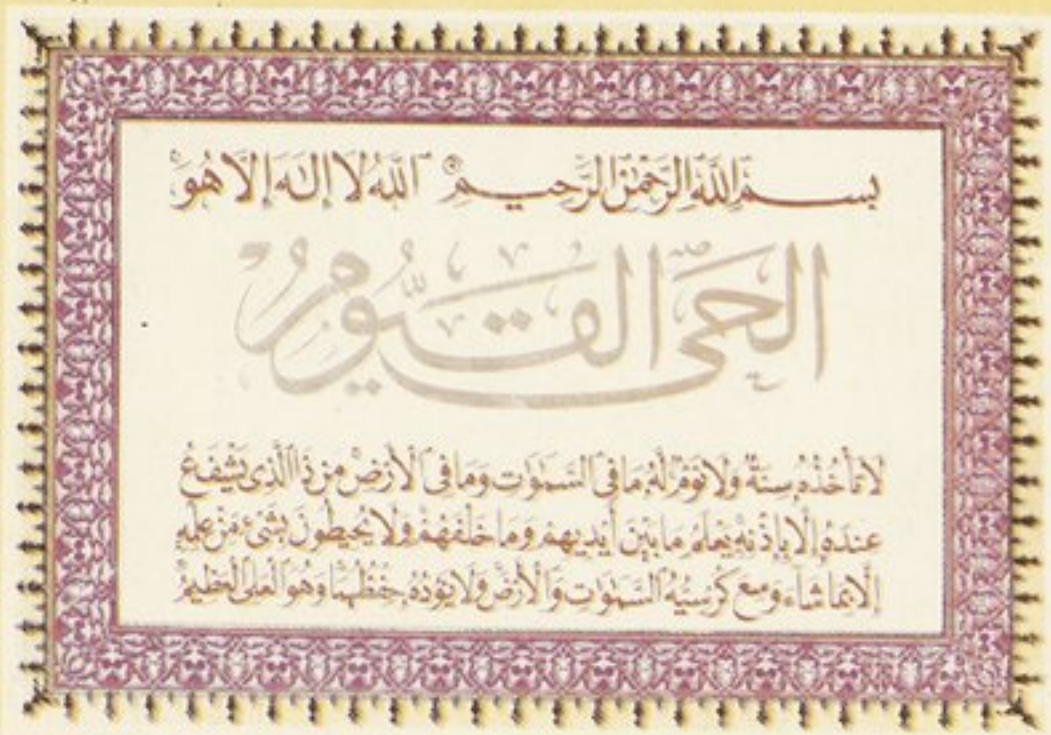 بِسْمِ اللَّهِ الرَّحْمَٰنِ الرَّحِيمِ اللَّهُ لَا إِلَٰهَ إِلَّا هُوَ
الْحَيُّ الْقَيُّومُ
لَا تَأْخُذُهُ سِنَةٌ وَلَا نَوْمٌ لَهُ مَا فِي السَّمَٰوَاتِ وَمَا فِي الْأَرْضِ مَنْ ذَا الَّذِي يَشْفَعُ
عِنْدَهُ إِلَّا بِإِذْنِهِ يَعْلَمُ مَا بَيْنَ أَيْدِيهِمْ وَمَا خَلْفَهُمْ وَلَا يُحِيطُونَ بِشَيْءٍ مِنْ عِلْمِهِ
إِلَّا بِمَا شَاءَ وَسِعَ كُرْسِيُّهُ السَّمَٰوَاتِ وَالْأَرْضَ وَلَا يَئُودُهُ حِفْظُهُمَا وَهُوَ الْعَلِيُّ الْعَظِيمُ